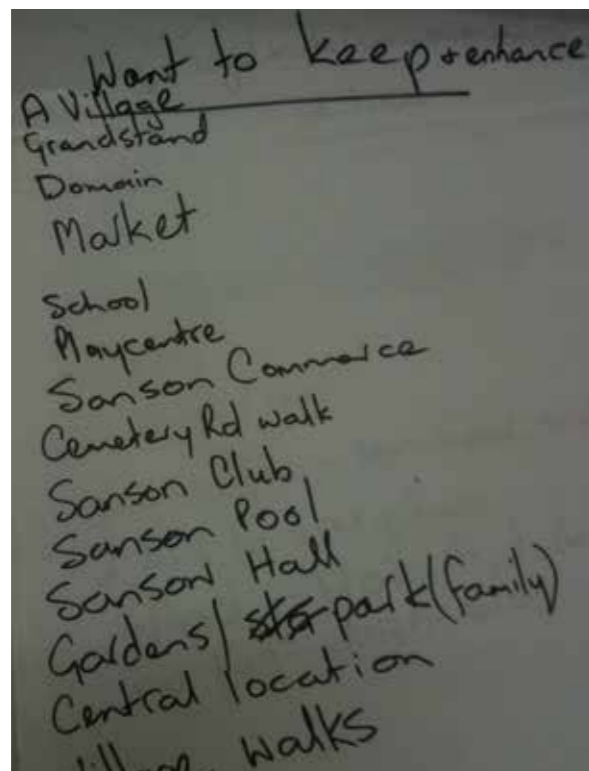 Want to keep + enhance
A Village
Grandstand
Domain
Market
School
Playcentre
Sanson Commerce
Cemetery Rd walk
Sanson Club
Sanson Pool
Sanson Hall
Gardens/ park (family)
Central location
Village walks